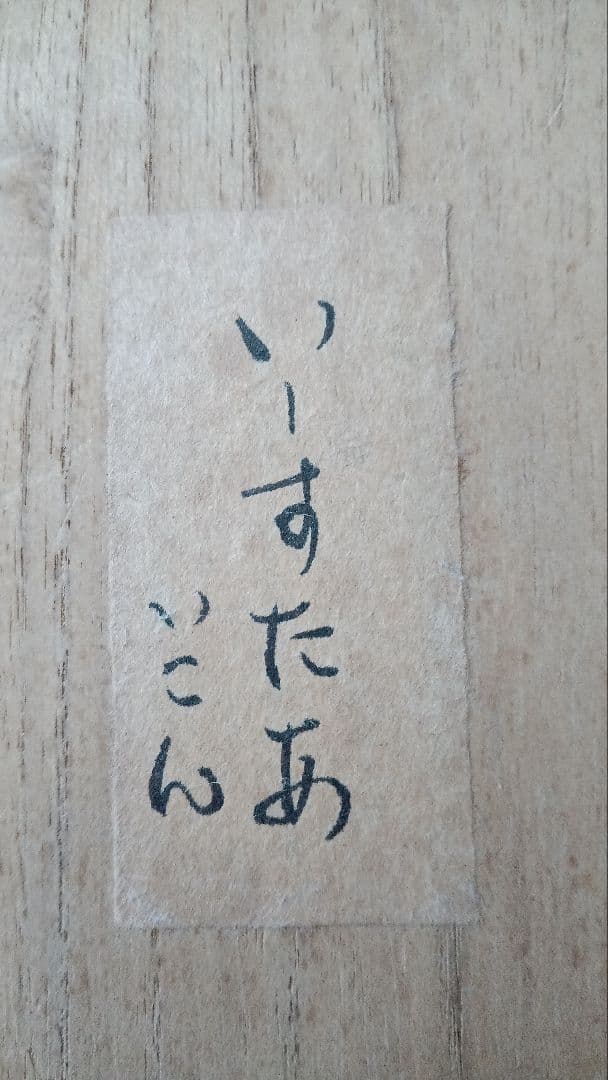 いーすたあ
いこん